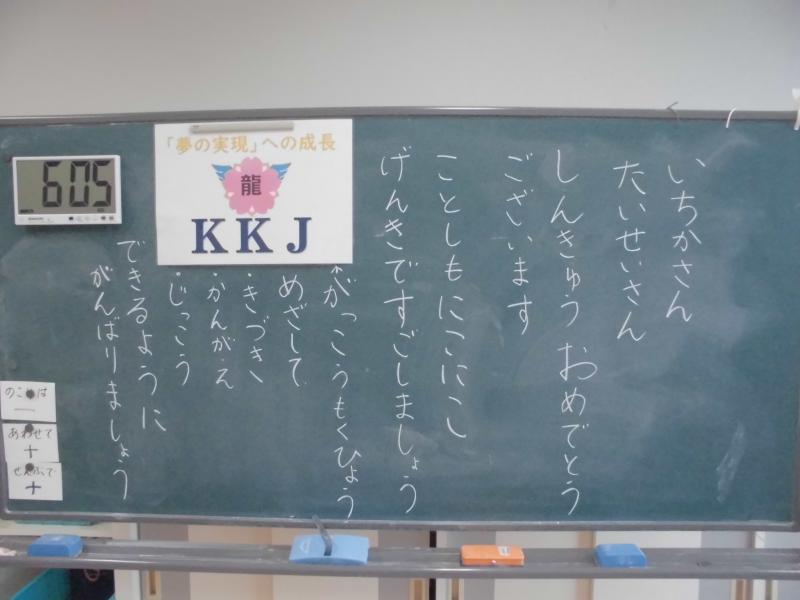 いちかさん
たいせいさん
しんきゅう おめでとう
ございます
ことしもにこにこし
げんきですごしましょう
がっこうもくひょう
めざして
・きづき
・かんがえ
・じっこう
できるように
がんばりましょう
「夢の実現」への成長
龍
KKJ
605
あわせて
＋
ぜんぶで
＋